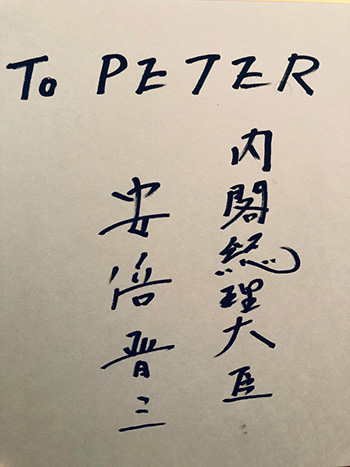 To PETER
内閣総理大臣
安倍晋三